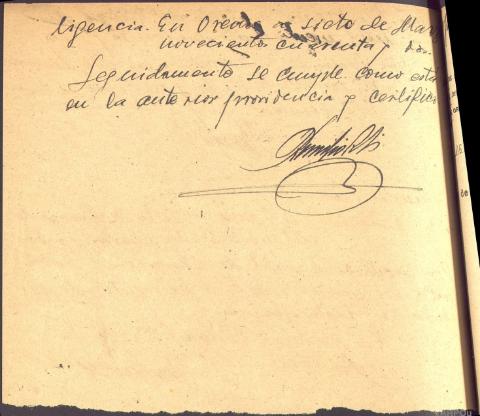 ligencia. En Orense a siete de Mar
novecientos cuarenta y dos.
Seguidamente se cumple como está
en la anterior providencia y certifico